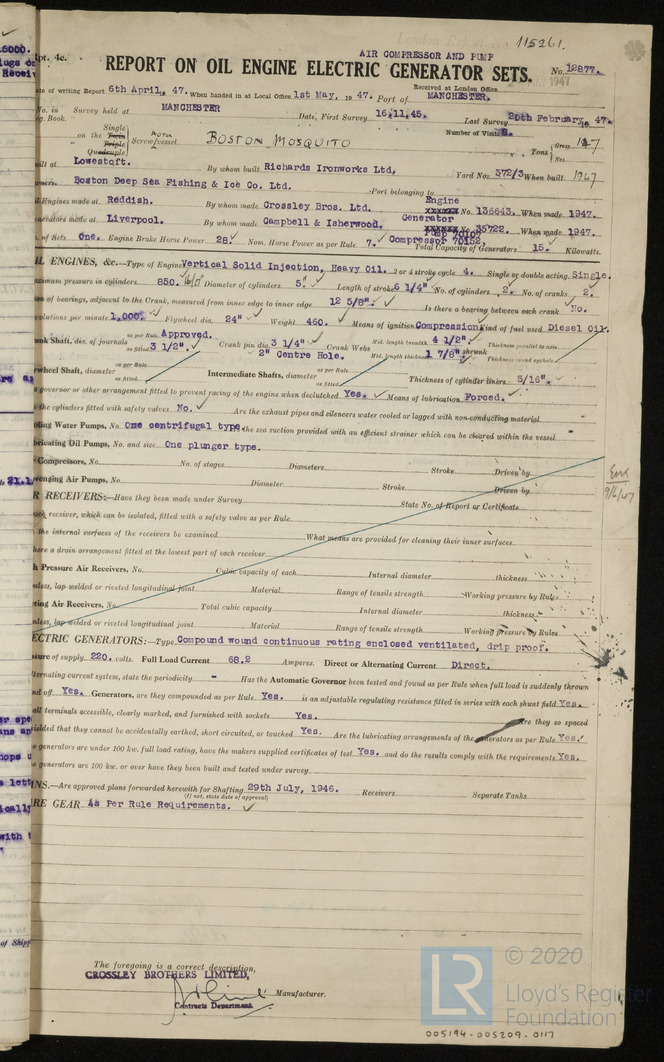 115261.
Rpt. 4c.
AIR COMPRESSOR AND PUMP
REPORT ON OIL ENGINE ELECTRIC GENERATOR SETS.
No. 12877.
Date of writing Report 6th April, 19 47. When handed in at Local Office 1st May, 19 47. Port of MANCHESTER. Received at London Office
No. in Reg. Book. Survey held at MANCHESTER Date, First Survey 16.11.45. Last Survey 20th February, 19 47.
Number of Visits 8.
on the Single Twin Triple Quadruple Screw Motor vessel BOSTON MOSQUITO Tons Gross 147 Net
Built at Lowestoft. By whom built Richards Ironworks Ltd, Yard No. 372/3 When built 1947
Owners. Boston Deep Sea Fishing & Ice Co. Ltd. Port belonging to
Oil Engines made at Reddish. By whom made Crossley Bros. Ltd. Engine No. 135643. When made 1947.
Generators made at Liverpool. By whom made Campbell & Isherwood. Generator No. 35722. When made 1947.
No. of Sets One. Engine Brake Horse Power 28. Nom. Horse Power as per Rule 7. Compressor 70152, Total Capacity of Generators 15. Kilowatts.
OIL ENGINES, &c.—Type of Engine Vertical Solid Injection, Heavy Oil. 2 or 4 stroke cycle 4. Single or double acting Single.
Maximum pressure in cylinders 850. Diameter of cylinders 5" Length of stroke 6 1/4" No. of cylinders 2. No. of cranks 2.
Span of bearings, adjacent to the Crank, measured from inner edge to inner edge 12 5/8". Is there a bearing between each crank No.
Revolutions per minute 1,000. Flywheel dia. 24" Weight 460. Means of ignition Compression Kind of fuel used Diesel Oil.
Crank Shaft, dia. of journals as per Rule Approved. as fitted 3 1/2". Crank pin dia. 3 1/4" Crank Webs Mid. length breadth 4 1/2" Thickness parallel to axis
2" Centre Hole. Mid. length thickness 1 7/8" shrunk Thickness round eyehole
Flywheel Shaft, diameter as per Rule as fitted Intermediate Shafts, diameter as per Rule as fitted Thickness of cylinder liners 5/16".
Is a governor or other arrangement fitted to prevent racing of the engine when declutched Yes. Means of lubrication Forced.
Are the cylinders fitted with safety valves No. Are the exhaust pipes and silencers water cooled or lagged with non-conducting material
Cooling Water Pumps, No. One centrifugal type. Is the sea suction provided with an efficient strainer which can be cleared within the vessel
Lubricating Oil Pumps, No. and size One plunger type.
Air Compressors, No. No. of stages Diameters Stroke Driven by
Scavenging Air Pumps, No. Diameter Stroke Driven by
AIR RECEIVERS:—Have they been made under Survey State No. of Report or Certificate
Is each receiver, which can be isolated, fitted with a safety valve as per Rule
Can the internal surfaces of the receivers be examined What means are provided for cleaning their inner surfaces
Is there a drain arrangement fitted at the lowest part of each receiver
High Pressure Air Receivers, No. Cubic capacity of each Internal diameter thickness
Seamless, lap welded or riveted longitudinal joint Material Range of tensile strength Working pressure by Rules
Starting Air Receivers, No. Total cubic capacity Internal diameter thickness
Seamless, lap welded or riveted longitudinal joint Material Range of tensile strength Working pressure by Rules
ELECTRIC GENERATORS:—Type Compound wound continuous rating enclosed ventilated, drip proof.
Pressure of supply 220. volts. Full Load Current 68.2 Amperes. Direct or Alternating Current Direct.
If alternating current system, state the periodicity - Has the Automatic Governor been tested and found as per Rule when full load is suddenly thrown
on and off Yes. Generators, are they compounded as per Rule Yes. is an adjustable regulating resistance fitted in series with each shunt field Yes.
Are all terminals accessible, clearly marked, and furnished with sockets Yes. Are they so spaced
or shielded that they cannot be accidentally earthed, short circuited, or touched Yes. Are the lubricating arrangements of the generators as per Rule Yes.
If the generators are under 100 kw. full load rating, have the makers supplied certificates of test Yes. and do the results comply with the requirements Yes.
If the generators are 100 kw. or over have they been built and tested under survey
PLANS.—Are approved plans forwarded herewith for Shafting 29th July, 1946. Receivers Separate Tanks
(If not, state date of approval)
SPARE GEAR As Per Rule Requirements.
The foregoing is a correct description,
CROSSLEY BROTHERS LIMITED,
Manufacturer.
Contracts Department.
LR © 2020
Lloyd's Register
Foundation
005194-005209-0117